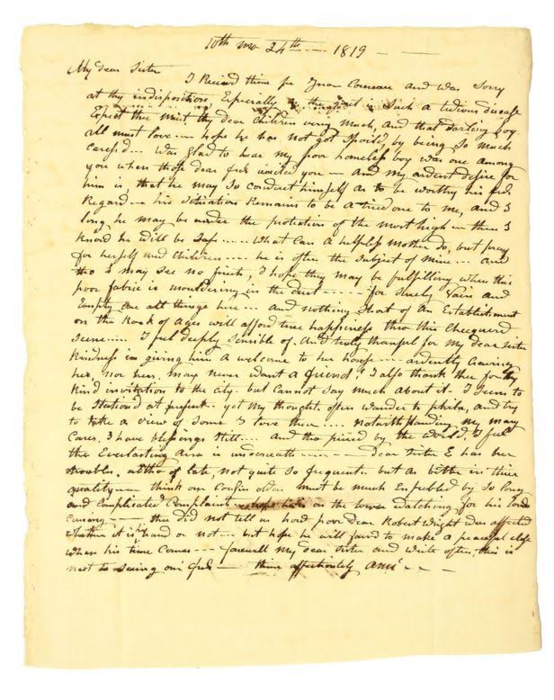 10th mo 24th — 1819 —
My dear Sister
I Receivd thine and was Sorry
at thy indisposition, Especially as it is Such a tedious disease
Expect thee mist thy dear Children very much, And that darling boy
all must love — hope he has not got Spoild by being So much
Caressd — was glad to hear my poor homeless boy was one among
you when those dear frds visited you — And my ardent desire for
him is, that he may So conduct himself as to be worthy his frds
Regard — his Situation Remains to be a tried one to me, and I
long he may be under the protection of the most high — then I
know he will be Safe — what can a helpless mother do, but pray
for herself and Children — he is often the Subject of mine — And
tho I may See no fruit, I hope they may be fulfilling when this
poor fabric is mouldering in the dust — for Surely Vain and
Empty are all things here — and nothing Short of an Establishment
on the Rock of Ages will afford true happiness thro this Checquerd
Scene — I feel deeply Sensible of And truly thankful for my dear Sister
kindness in giving him a welcome to her house — ardently Craving
her, nor hers, may never want a friend. I also thank thee for thy
kind invitation to the city but Cannot Say much about it. I Seem to
be Stationd at present — yet my thoughts often wander to philada, and try
to take a view of Some I love there — notwithstanding my many
Cares, I have blessings Still — And tho pierced by the world, to feel
the Everlasting Arm is underneath — dear Sister E has her
troubles, altho of late not quite So frequent — but as bitter in their
quality — think our Cousin must be much Enfeebled by So long
and Complicated Complaint on the tower Watching for his lord
Coming — thee did not tell us how poor dear Robert Wright was affected
whether it is hard or not — but hope he will be favord to make a peaceful close
when his time Comes — farewell my dear Sister and write often, this is
next to Seeing our frds — thine affectionately Ann